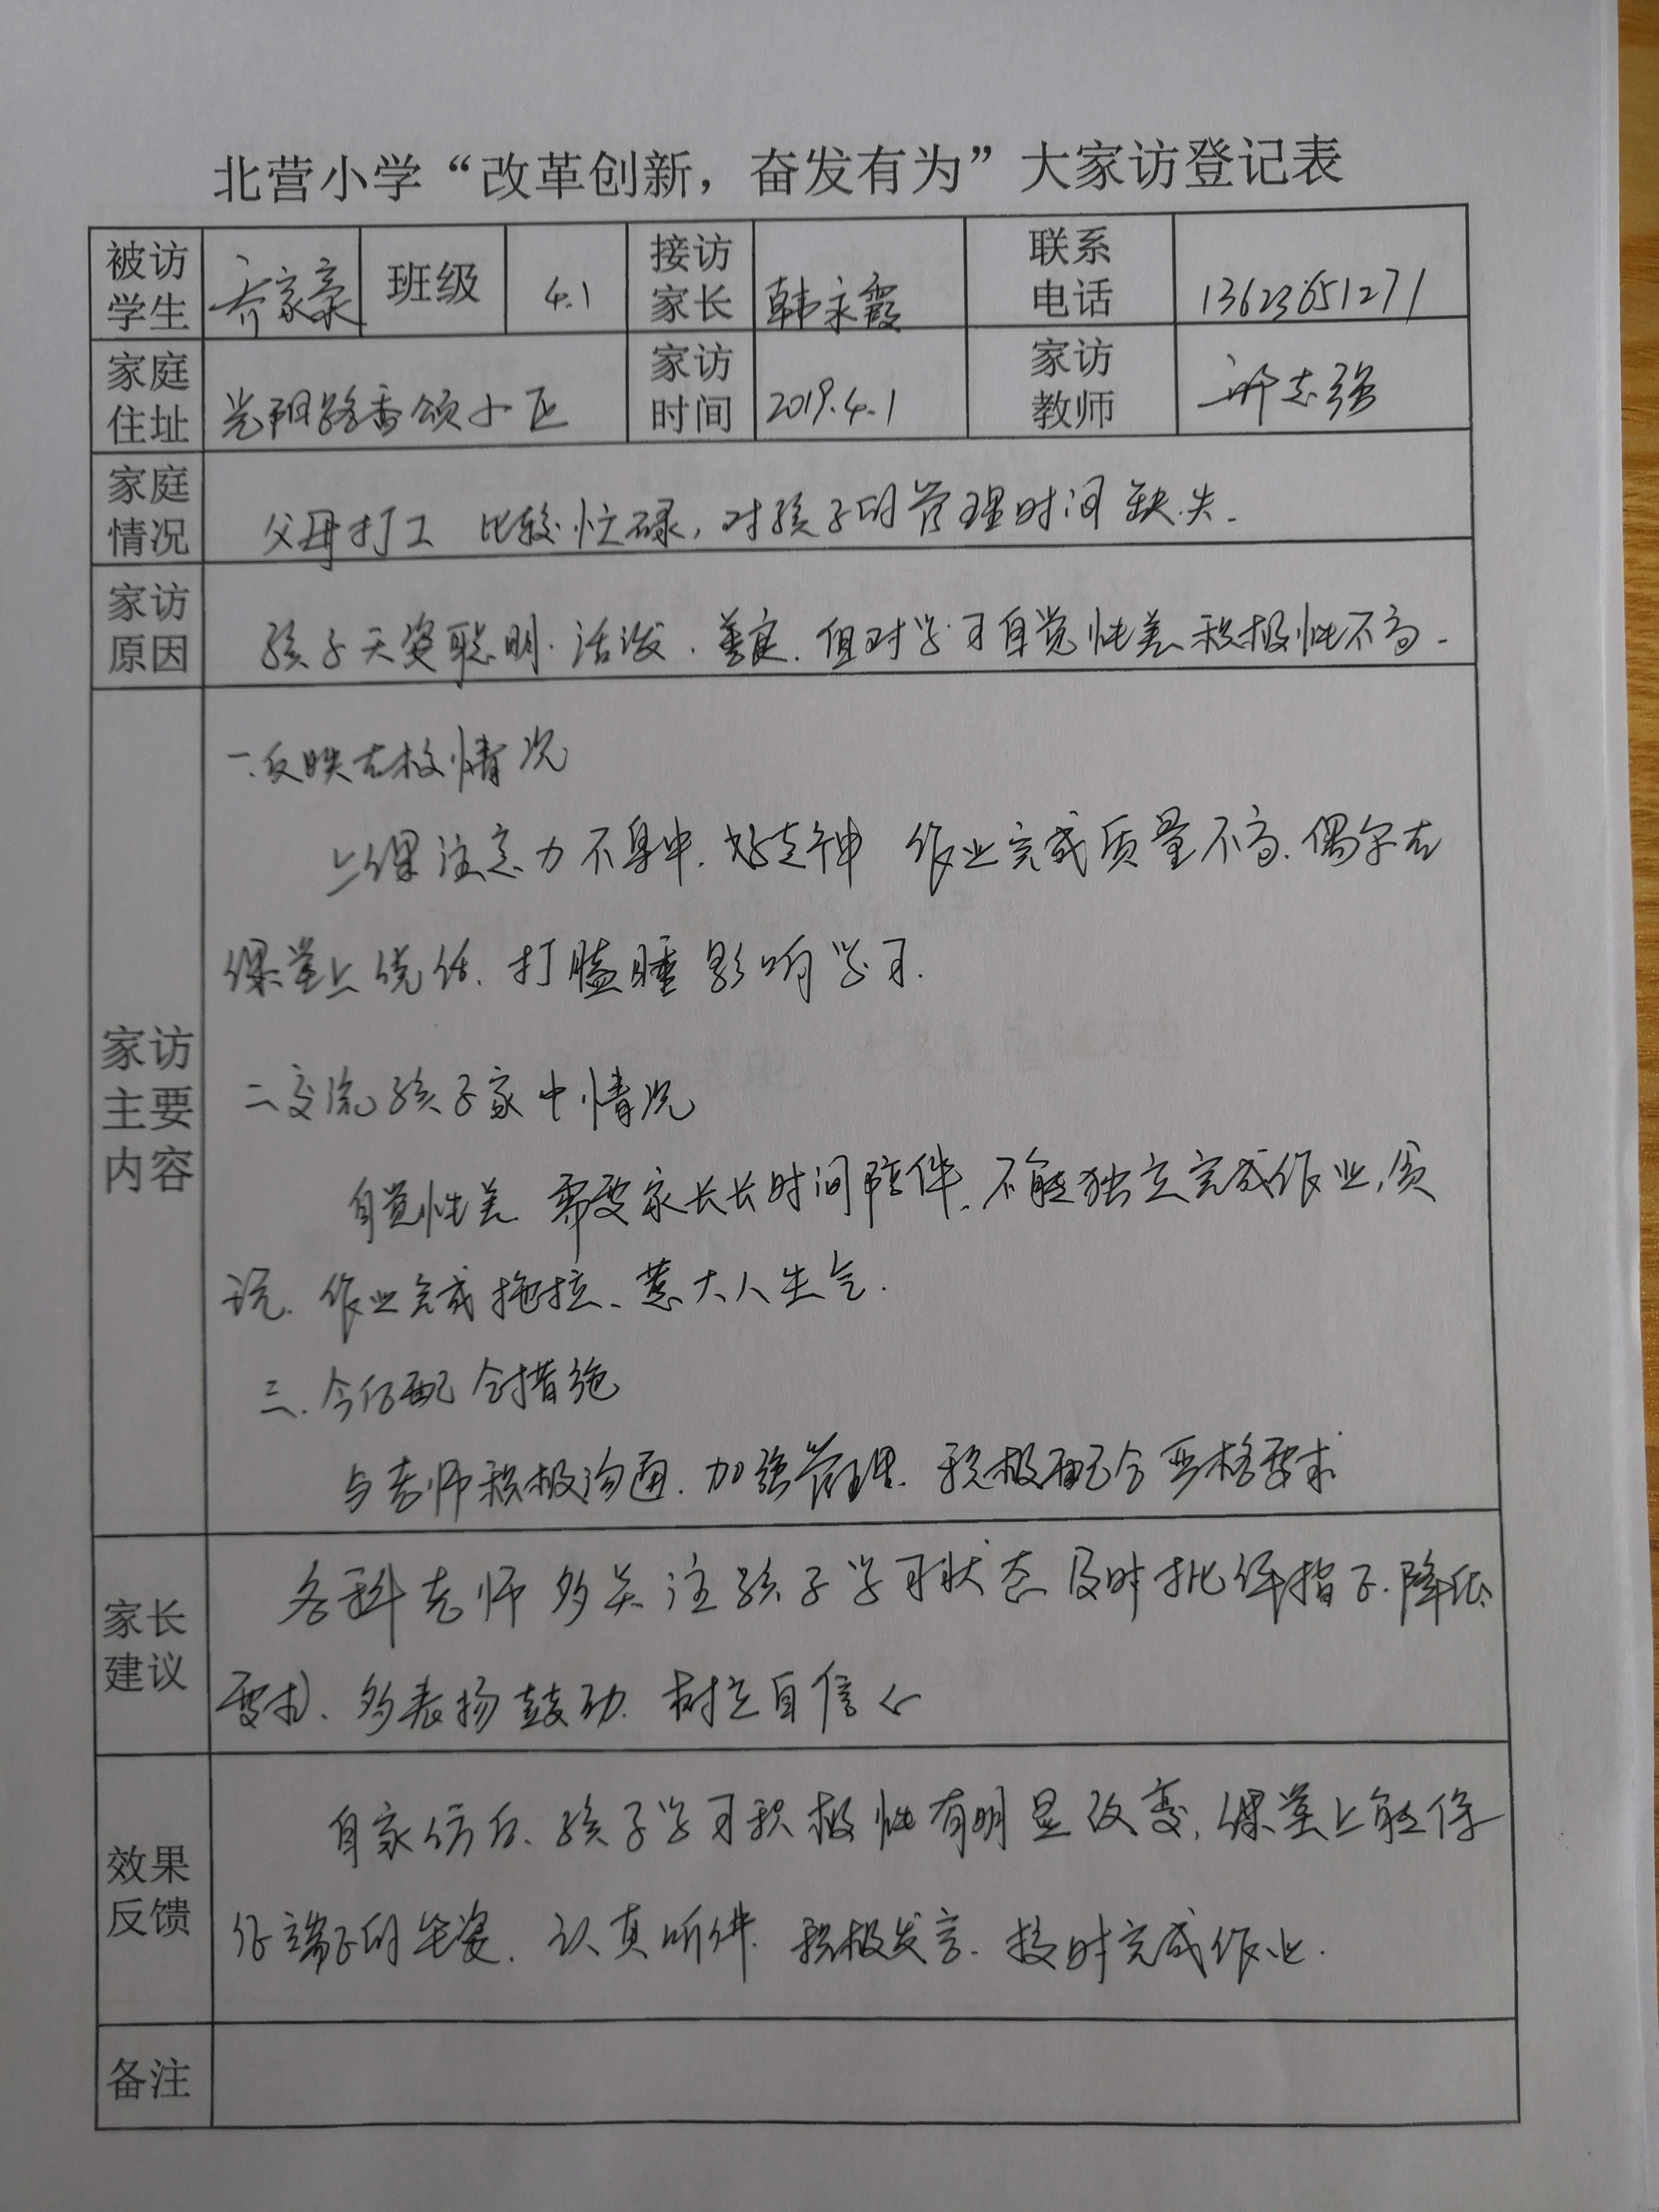 北营小学“改革创新，奋发有为”大家访登记表
被访学生 齐家豪 班级 4.1 接访家长 韩永霞 联系电话 13623651271
家庭住址 光阳路香颂小区 家访时间 2019.4.1 家访教师 志强
家庭情况 父母打工 比较忙碌，对孩子的管理时间缺失.
家访原因 孩子天资聪明.活泼.善良.但对学习自觉性差、积极性不高.
家访主要内容
一.反映在校情况
上课注意力不集中.好走神 作业完成质量不高.偶尔在
课堂上说话.打瞌睡影响学习.
二交流孩子家中情况
自觉性差.需要家长长时间陪伴.不能独立完成作业，贪
玩.作业完成拖拉、惹大人生气.
三.今后配合措施
与老师积极沟通.加强管理.积极配合严格要求
家长建议 各科老师多关注孩子学习状态及时批评指正.降低
要求、多表扬鼓励.树立自信心
效果反馈 自家访后、孩子学习积极性有明显改变，课堂上能保
证端正的坐姿.认真听讲.积极发言.按时完成作业.
备注